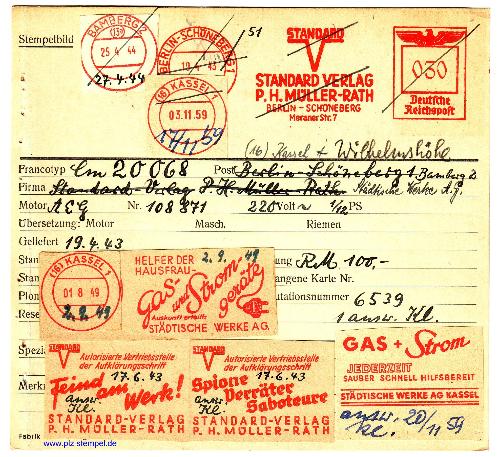 Stempelbild
BAMBERG 2
(13a)
25.4.44
27.4.44
BERLIN-SCHÖNEBERG 1
43
51
(16) KASSEL 1
03.11.59
17/11 59
STANDARD
STANDARD VERLAG
P. H. MÜLLER-RATH
BERLIN - SCHÖNEBERG
Meraner Str. 7
030
Deutsche
Reichspost
(16) Kassel + Wilhelmshöhe
Francotyp Cm 20068 Post Berlin-Schöneberg 1 Bamberg 2
Firma Standard-Verlag P. H. Müller-Rath Städtische Werke A.G.
Motor AEG Nr. 108871 220 Volt ~ 1/12 PS
Übersetzung: Motor Masch. Riemen
Geliefert 19.4.43
(16) KASSEL 1
01.8.49
2.9.49
HELFER DER 2.9.49
HAUSFRAU -
Gas- und Strom-
geräte
Auskunft erteilt:
STÄDTISCHE WERKE AG.
RM 100,-
angene Karte Nr.
utationsnummer 6539
1 answ. Kl.
Spezi
Merkm
STANDARD
Autorisierte Vertriebsstelle
der Aufklärungsschrift
17.6.43
Feind am Werk!
answ.
Kl.
STANDARD-VERLAG
P. H. MÜLLER-RATH
STANDARD
Autorisierte Vertriebsstelle
der Aufklärungsschrift
17.6.43
Spione
Verräter
Saboteure
answ.
Kl.
STANDARD-VERLAG
P. H. MÜLLER-RATH
GAS + Strom
JEDERZEIT
SAUBER SCHNELL HILFSBEREIT
STÄDTISCHE WERKE AG KASSEL
answ. 20/11 59
Kl.
Fabrik
www.plz-stempel.de